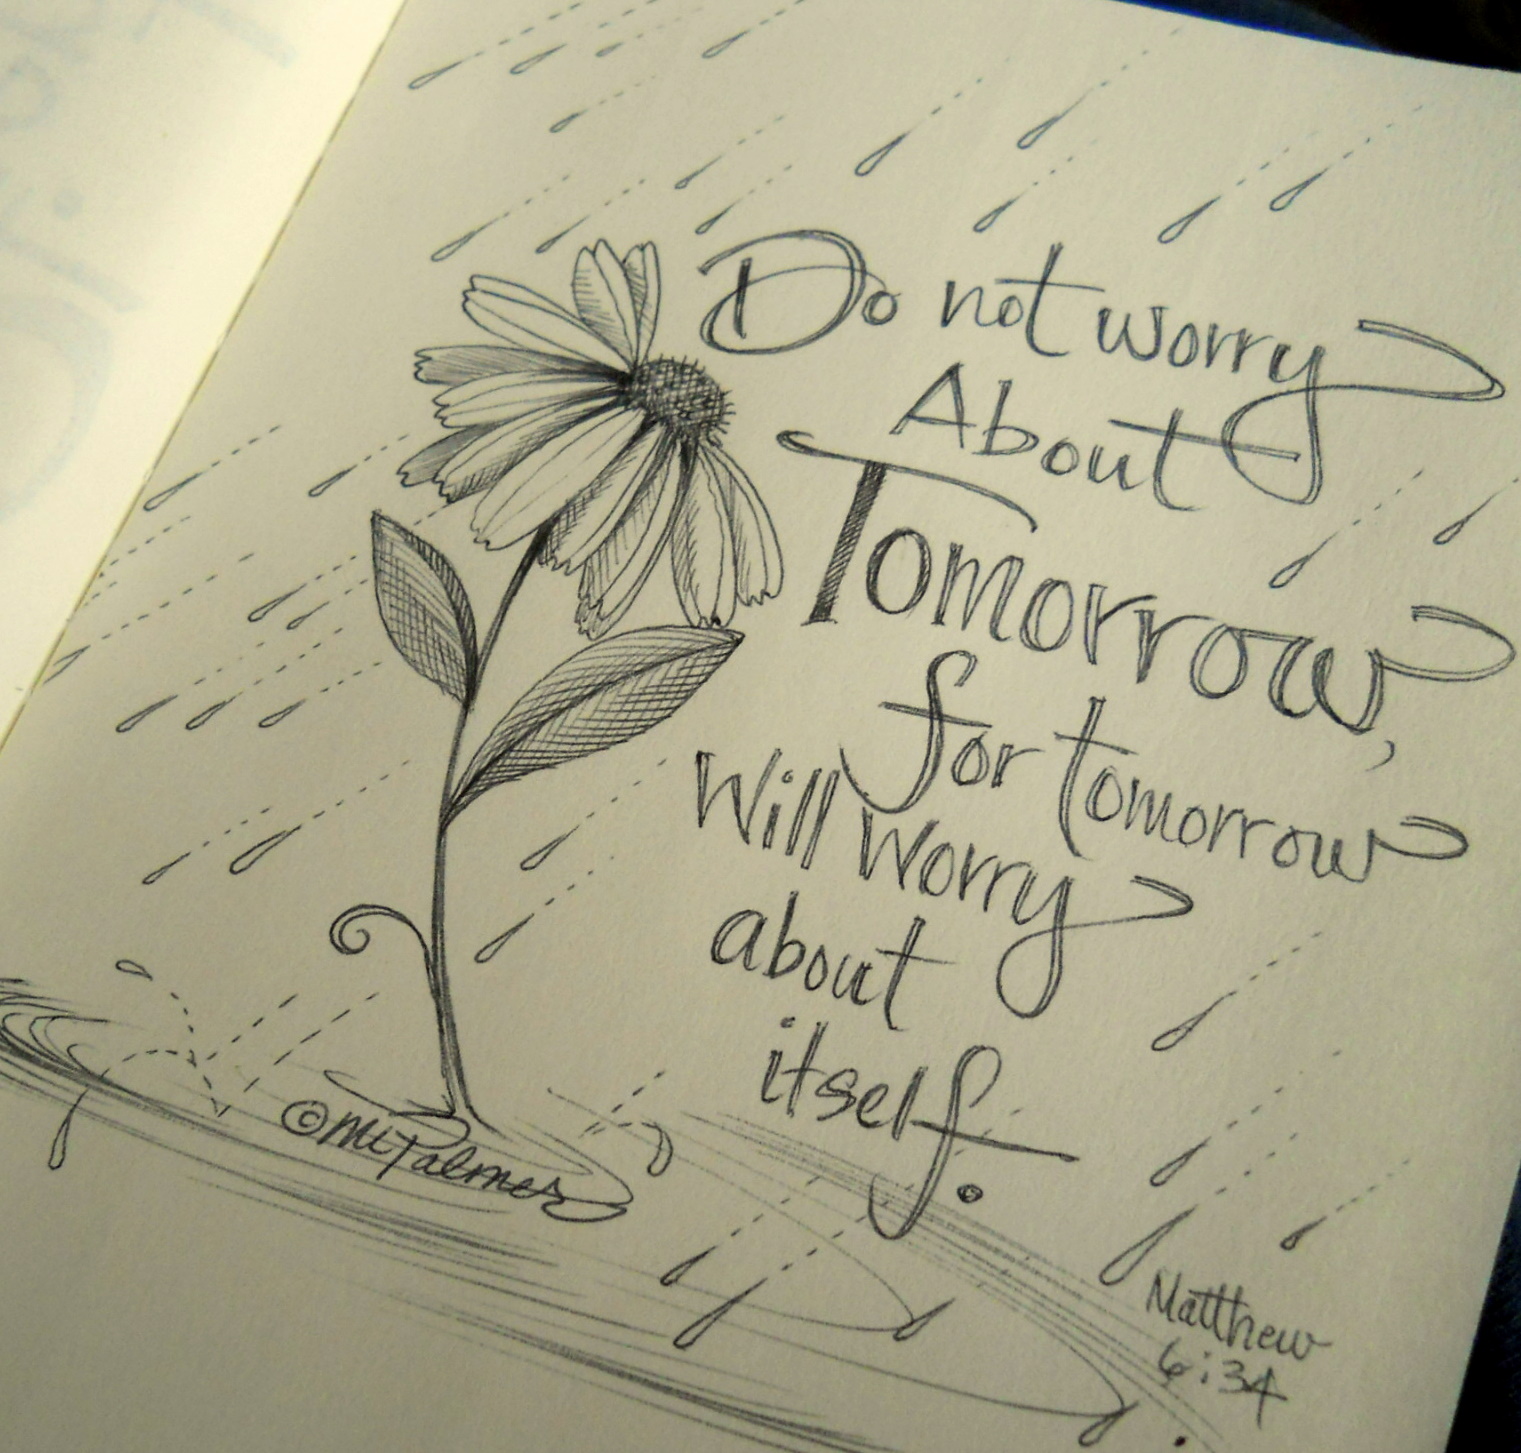 Do not worry
About
Tomorrow,
for tomorrow
Will Worry
about
itself.
Matthew
6:34